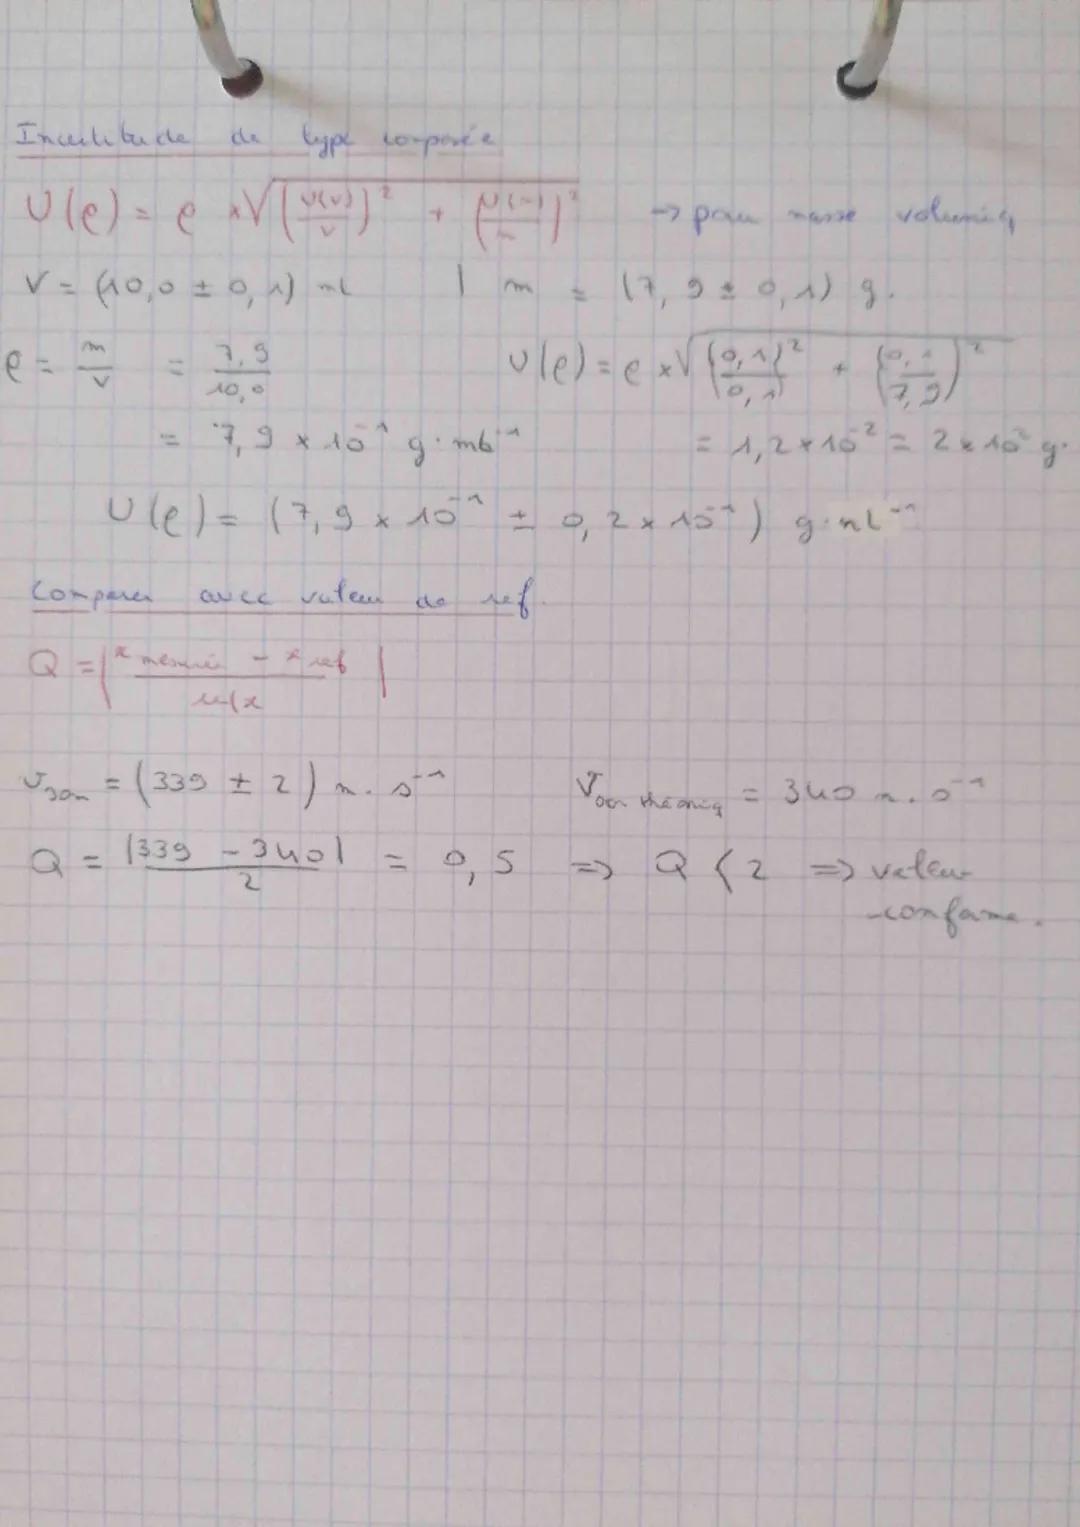 Incertitude de type composée
U(ρ) = ρ × √((U(V)/V)² + (U(m)/m)²) → pour masse volumiq
V = (10,0 ± 0,1) mL | m = (7,9 ± 0,1) g.
ρ = m/V = 7,9/10,0 U(ρ) = ρ × √((0,1/0,1)² + (0,1/7,9)²)
= 7,9 × 10⁻¹ g·mL⁻¹ = 1,2 × 10⁻² = 2 × 10⁻² g.
U(ρ) = (7,9 × 10⁻¹ ± 0,2 × 10⁻¹) g·mL⁻¹
Comparer avec valeur de ref.
Q = |x mesurée - x ref / u(x|
Vson = (339 ± 2) m.s⁻¹ Vson théoriq = 340 m.s⁻¹
Q = |339 - 340|/2 = 0,5 => Q < 2 => valeur
conforme.